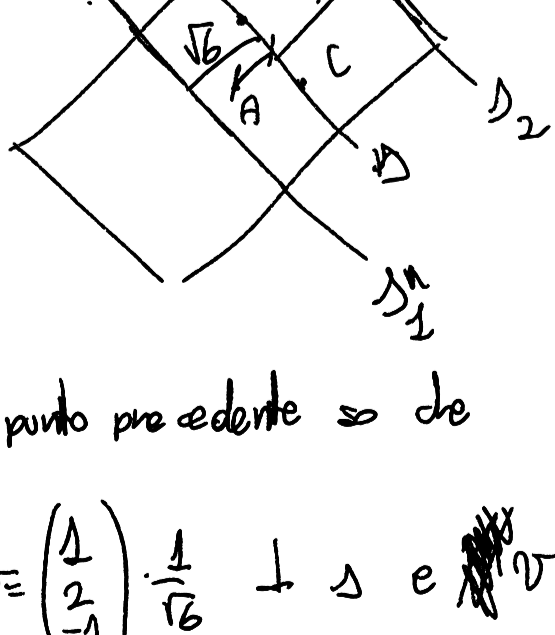 √6
C
A
s₂
s
s₁ⁿ
punto precedente so che
= (1 2 -1) · 1/√6 ⊥ s e v